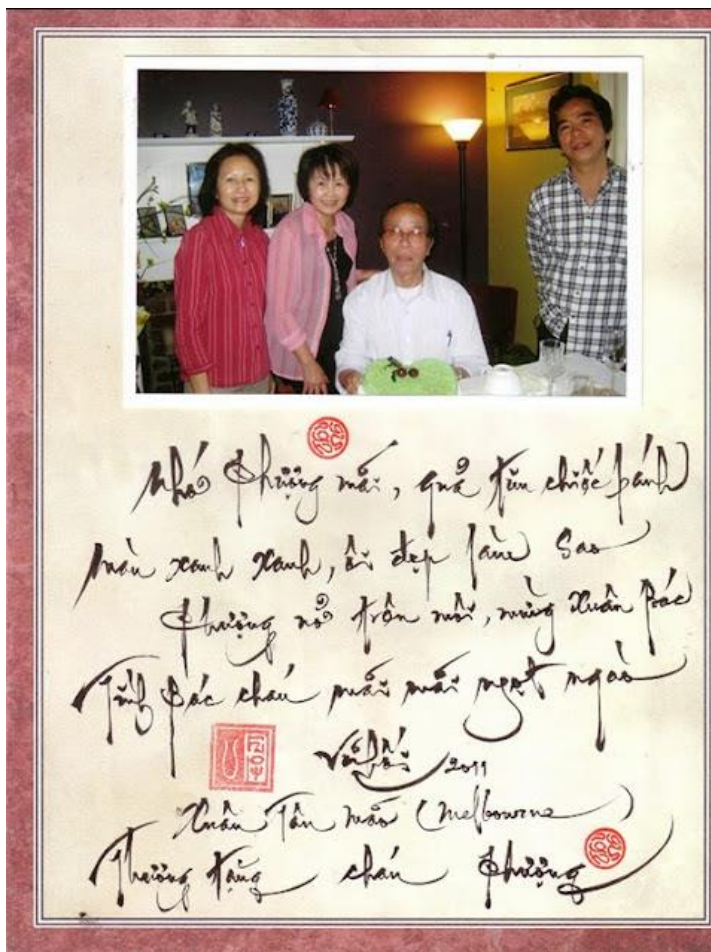 Nhớ Phượng mãi, quả tim chiếc bánh
màu xanh xanh, ôi đẹp làm sao
Phượng nở trên môi, mừng Xuân Bác
Tình Bác cháu mãi mãi ngọt ngào
2011
Xuân Tân Mão (Melbourne)
Thương tặng cháu Phượng